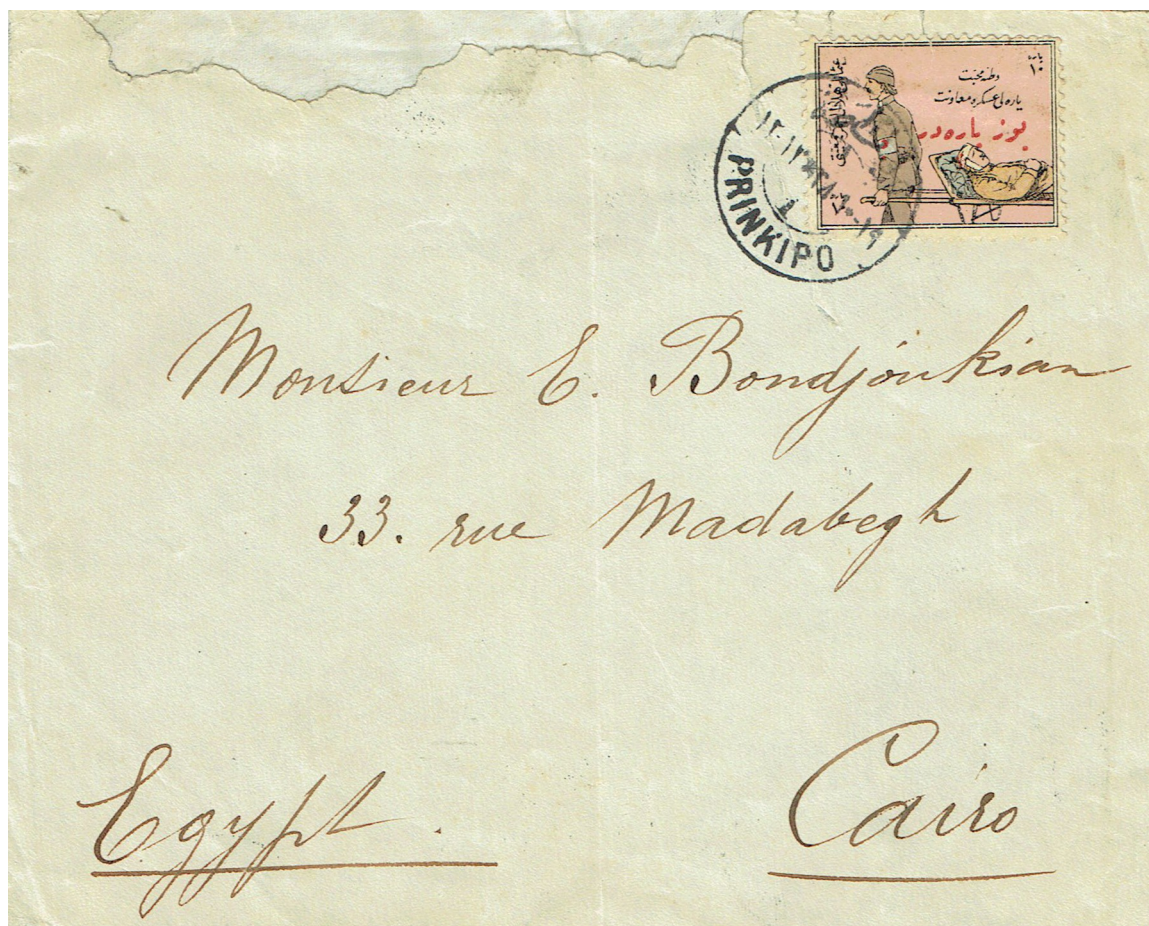 پاره
١٠
وطنه محبت
یاره لی عسكره معاونت
بوز پاره در
PRINKIPO
Monsieur E. Bondjoukian
33. rue Madabegh
Egypt.
Cairo